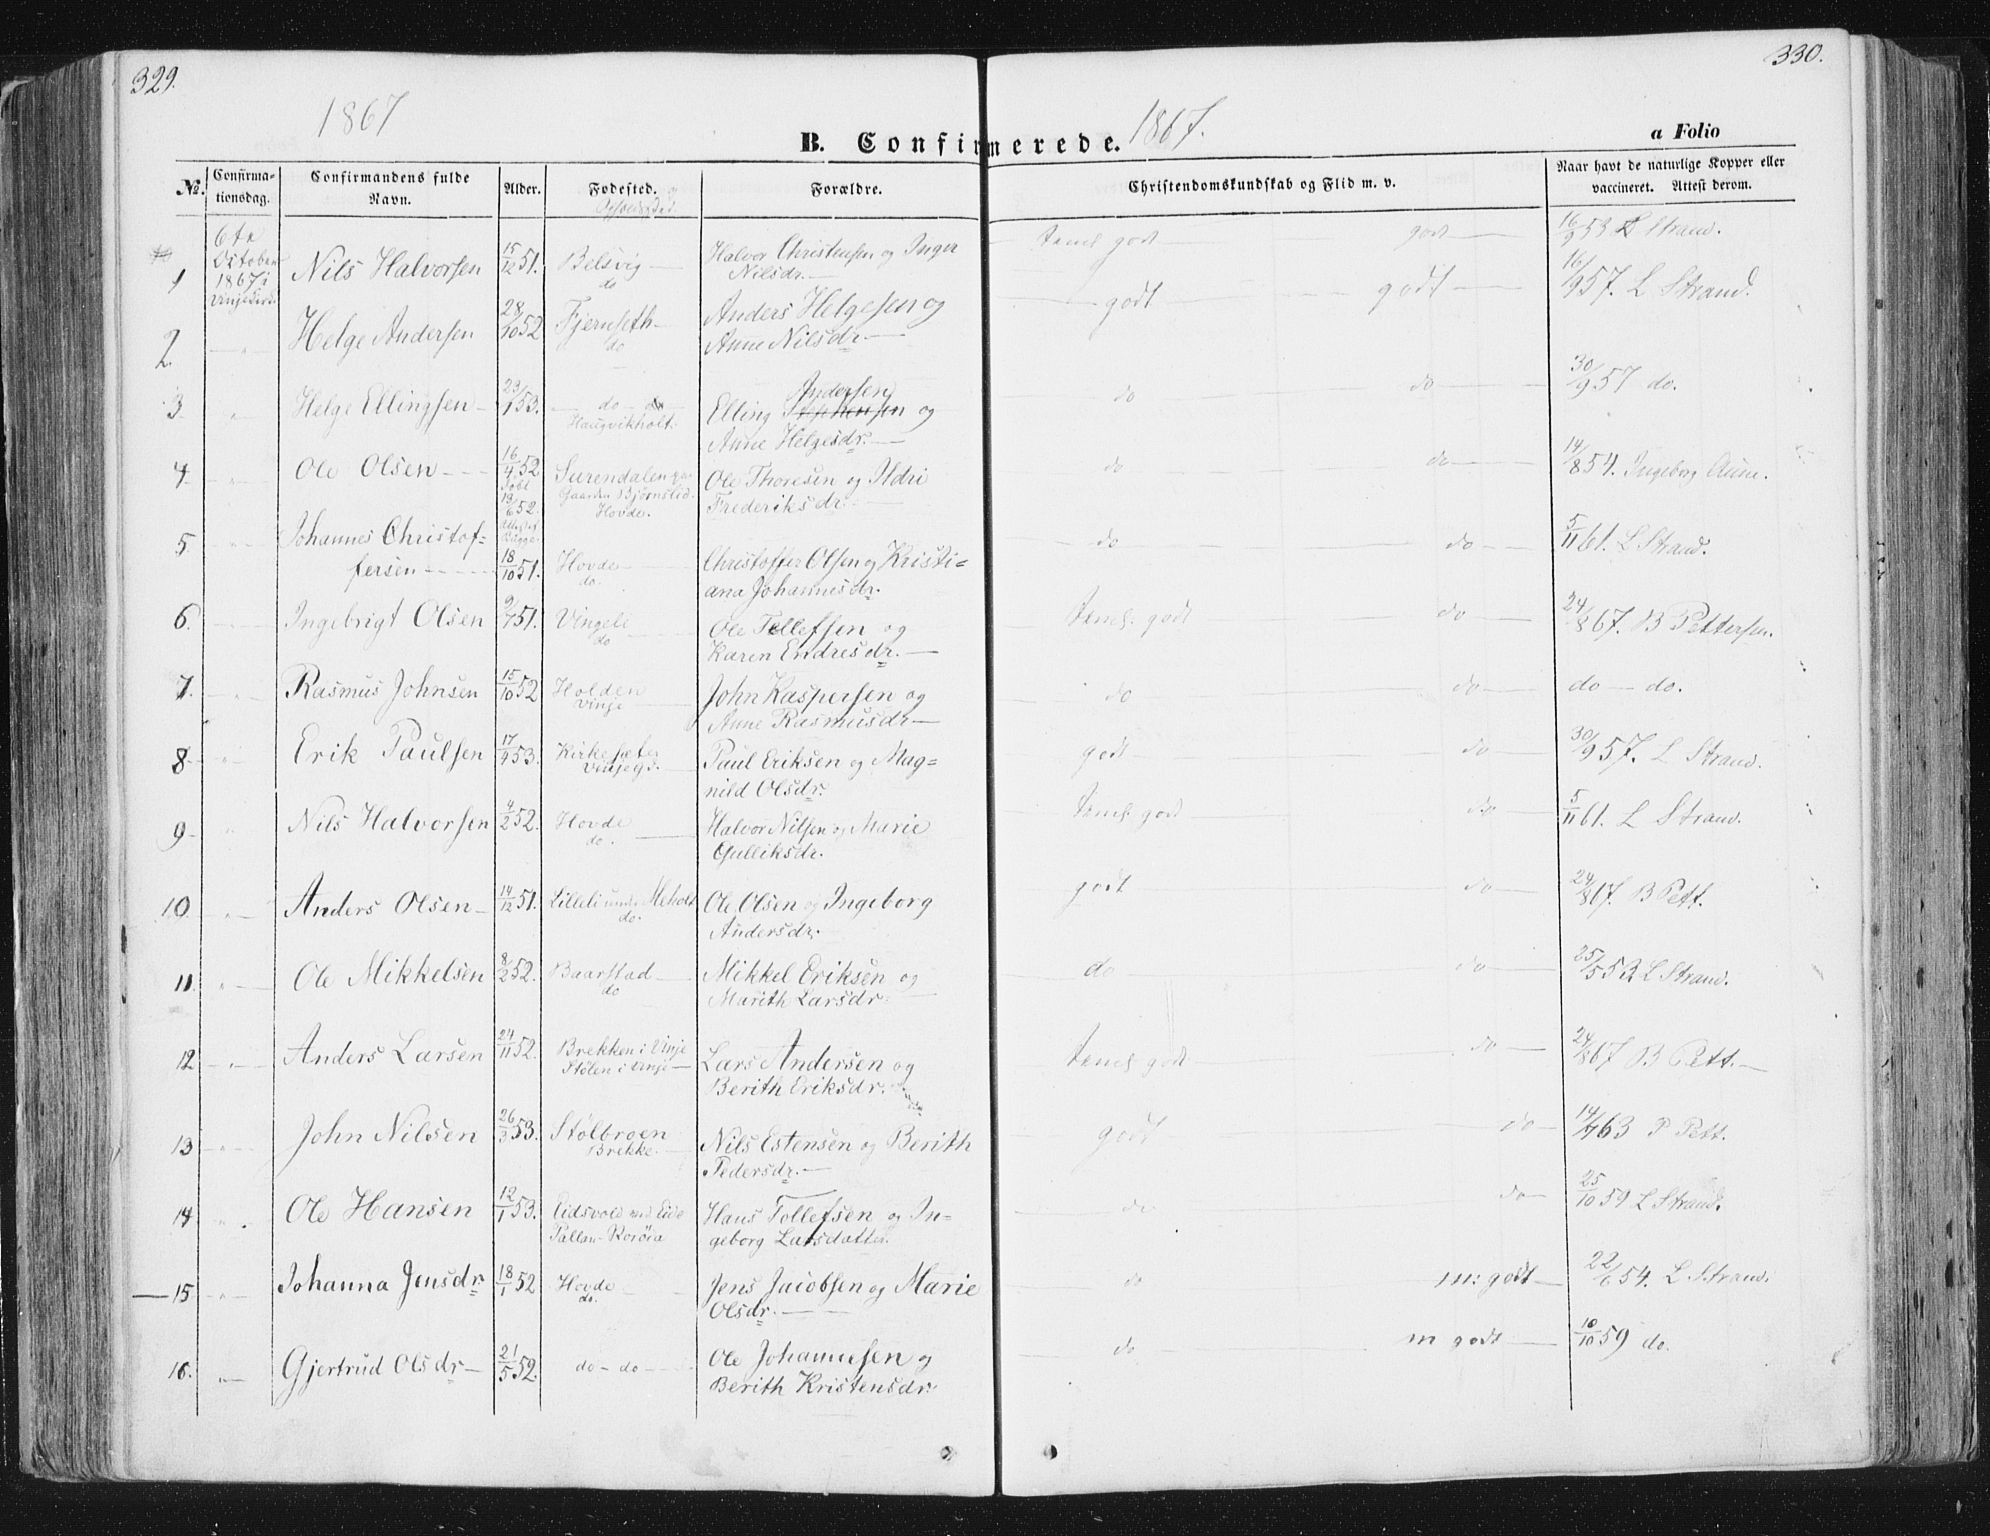 329.
330.
1867
B. Confirmerede.
1867.
a Folio
No.
Confirma-
tionsdag.
Confirmandens fulde
Navn.
Alder.
Fødested. og
Opholdssted.
Forældre.
Christendomskundskab og Flid m. v.
Naar havt de naturlige Kopper eller
vaccineret. Attest derom.
6te
October
1867 i
1 Nils Halvorsen 15/12 51. Belsvig do Halvor Christensen og Inger
Nilsdr. temel. godt godt 16/9 53 L Strand.
2 " Helge Andersen 28/10 52 Fjernseth do Anders Helgesen og
Anne Nilsdr. godt godt 16/9 57. L Strand.
3 " Helge Ellingsen 23/1 53. do Haugvikholt. Elling Andersen og
Anne Helgesdr. do do 30/9 57 do.
4 " Ole Olsen 16/4 52 Surendalen
Gaarden Bjørnslid
Hovde. Ole Thoresen og Ildri
Frederiksdr. do do 14/8 54. Ingeborg Aune.
5 " Johannes Christof-
fersen 18/10 51. Hovde do. Christoffer Olsen og Kristi-
ana Johannesdr. do do 5/11 61. L Strand.
6. Ingebrigt Olsen 9/7 51. Vingeli do Ole Tellefsen og
Karen Endresdr. temel: godt do 24/8 67. B Pettersen.
7. " Rasmus Johnsen 15/10 52 Holden Vinje John Kaspersen og
Anne Rasmusdr do do do do.
8 " Erik Paulsen 17/4 53. Kirkesæter Paul Eriksen og Mag-
nild Olsdr. godt do 30/9 57. L Strand.
9 " Nils Halvorsen 4/2 52. Hovde do. Halvor Nilsen og Marie
Gulliksdr. temel: godt do 5/11 61. L Strand.
10 " Anders Olsen 14/12 51. Lilleli under Meholt do. Ole Olsen og Ingeborg
Andersdr. godt do 24/8 67. B Pett.
11 " Ole Mikkelsen 8/2 52. Baarstad do Mikkel Eriksen og
Marith Larsdr do do 25/5 53 L Strand.
12 " Anders Larsen 24/11 52. Brekken i Vinje
Stølen i Vinje Lars Andersen og
Berith Eriksdr. temel godt do 24/8 67 B Pett.
13 " John Nilsen 26/3 53. Stølbroen
Brekke. Nils Estensen og Berith
Pedersdr. godt do 14/7 63 P Pett.
14 " Ole Hansen 12/1 53. Eidsvold
Hans Tollefsen og In-
geborg Larsdatter. do do 25/10 59 L Strand.
15 " Johanna Jensdr 18/1 52 Hovde do. Jens Jacobsen og Marie
Olsdr. do m: godt 22/6 54. L Strand.
16. " Gjertrud Olsdr 21/5 52. do do Ole Johannesen og
Berith Kristensdr. do m godt 10/10 59 do.